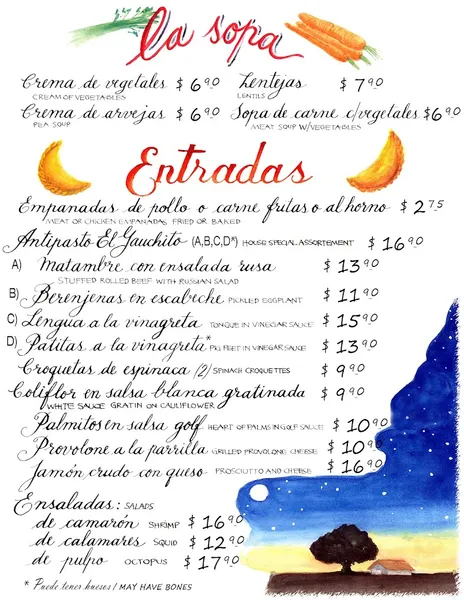 la sopa
Crema de vegetales $ 6.90 Lentejas $ 7.90
CREAM OF VEGETABLES LENTILS
Crema de arvejas $ 6.90 Sopa de carne c/vegetales $ 6.90
PEA SOUP MEAT SOUP W/VEGETABLES
Entradas
Empanadas de pollo o carne fritas o al horno $ 2.75
MEAT OR CHICKEN EMPANADAS FRIED OR BAKED
Antipasto El Gauchito (A,B,C,D*) HOUSE SPECIAL ASSORTEMENT $ 16.90
A) Matambre con ensalada rusa $ 13.90
STUFFED ROLLED BEEF WITH RUSSIAN SALAD
B) Berenjenas en escabeche PICKLED EGGPLANT $ 11.90
C) Lengua a la vinagreta TONGUE IN VINEGAR SAUCE $ 15.90
D) Patitas a la vinagreta* PIG FEET IN VINEGAR SAUCE $ 13.90
Croquetas de espinaca (2) SPINACH CROQUETTES $ 9.90
Coliflor en salsa blanca gratinada $ 9.90
WHITE SAUCE GRATIN ON CAULIFLOWER
Palmitos en salsa golf HEART OF PALMS IN GOLF SAUCE $ 10.90
Provolone a la parrilla GRILLED PROVOLONE CHEESE $ 10.90
Jamón crudo con queso PROSCIUTTO AND CHEESE $ 16.90
Ensaladas: SALADS
de camarón SHRIMP $ 16.90
de calamares SQUID $ 12.90
de pulpo OCTOPUS $ 17.90
* Puede tener huesos / MAY HAVE BONES